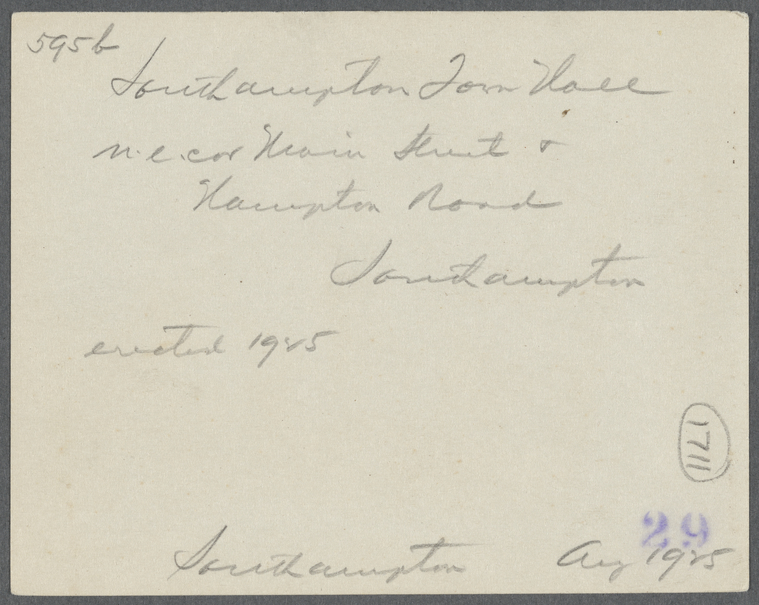 595b
Southampton Town Hall
n.e. cor Main Street &
Hampton Road
Southampton
erected 1925
1711
29
Southampton Aug 1925